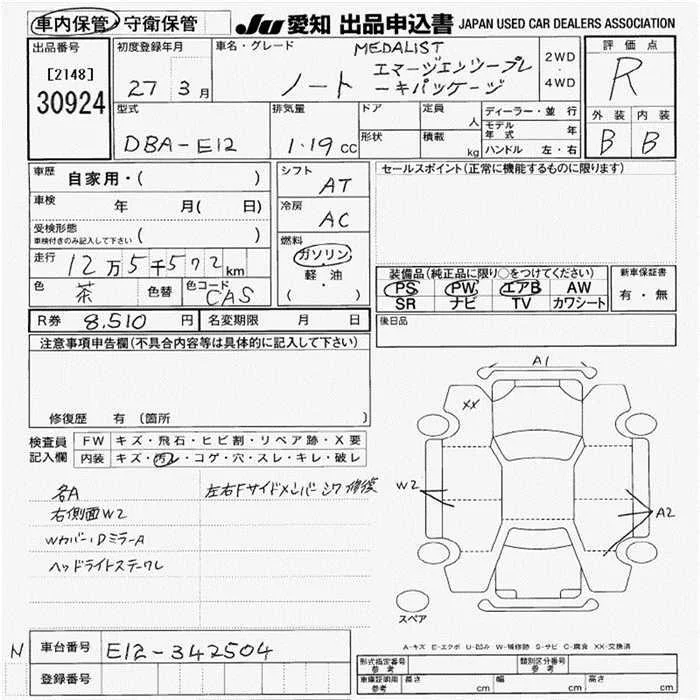 車内保管・守衛保管 JU 愛知 出品申込書 JAPAN USED CAR DEALERS ASSOCIATION
出品番号
[2148]
30924
初度登録年月
27 3月
車名・グレード
MEDALIST
ノート エマージェンシーブレ
ーキパッケージ
2WD
4WD
評価点
R
外装 内装
B B
型式
DBA-E12
排気量
1.19 cc
ドア
形状
定員
人
積載
kg
ディーラー・並行
モデル年式 年
ハンドル 左・右
車歴
自家用・( )
車検
年 月( 日)
受検形態
車検付きのみ記入して下さい ( )
走行 12万5千572km
色 茶 色替 色コード CAS
シフト
AT
冷房
AC
燃料
ガソリン
軽・油
( )
セールスポイント(正常に機能するものに限ります)
装備品(純正品に限り○をつけてください)
PS PW エアB AW
SR ナビ TV カワシート
新車保証書
有・無
後日品
R券 8.510 円 名変期限 月 日
注意事項申告欄(不具合内容等は具体的に記入して下さい)
修復歴 有(箇所 )
検査員
記入欄
FW キズ・飛石・ヒビ割・リペア跡・X要
内装 キズ・汚レ・コゲ・穴・スレ・キレ・破レ
各A
左右Fサイドメンバーシワ修復
右側面W2
Wカバー、DミラーA
ヘッドライトステークレ
A1
XX
W2
A2
スペア
A-キズ E-エクボ U-凹み W-補修跡 S-サビ C-腐食 XX-交換済
N
車台番号 E12-342504
登録番号
型式指定番号
参考
類別区分番号
参考
車庫証明用
参考
長さ cm 幅 cm 高さ cm